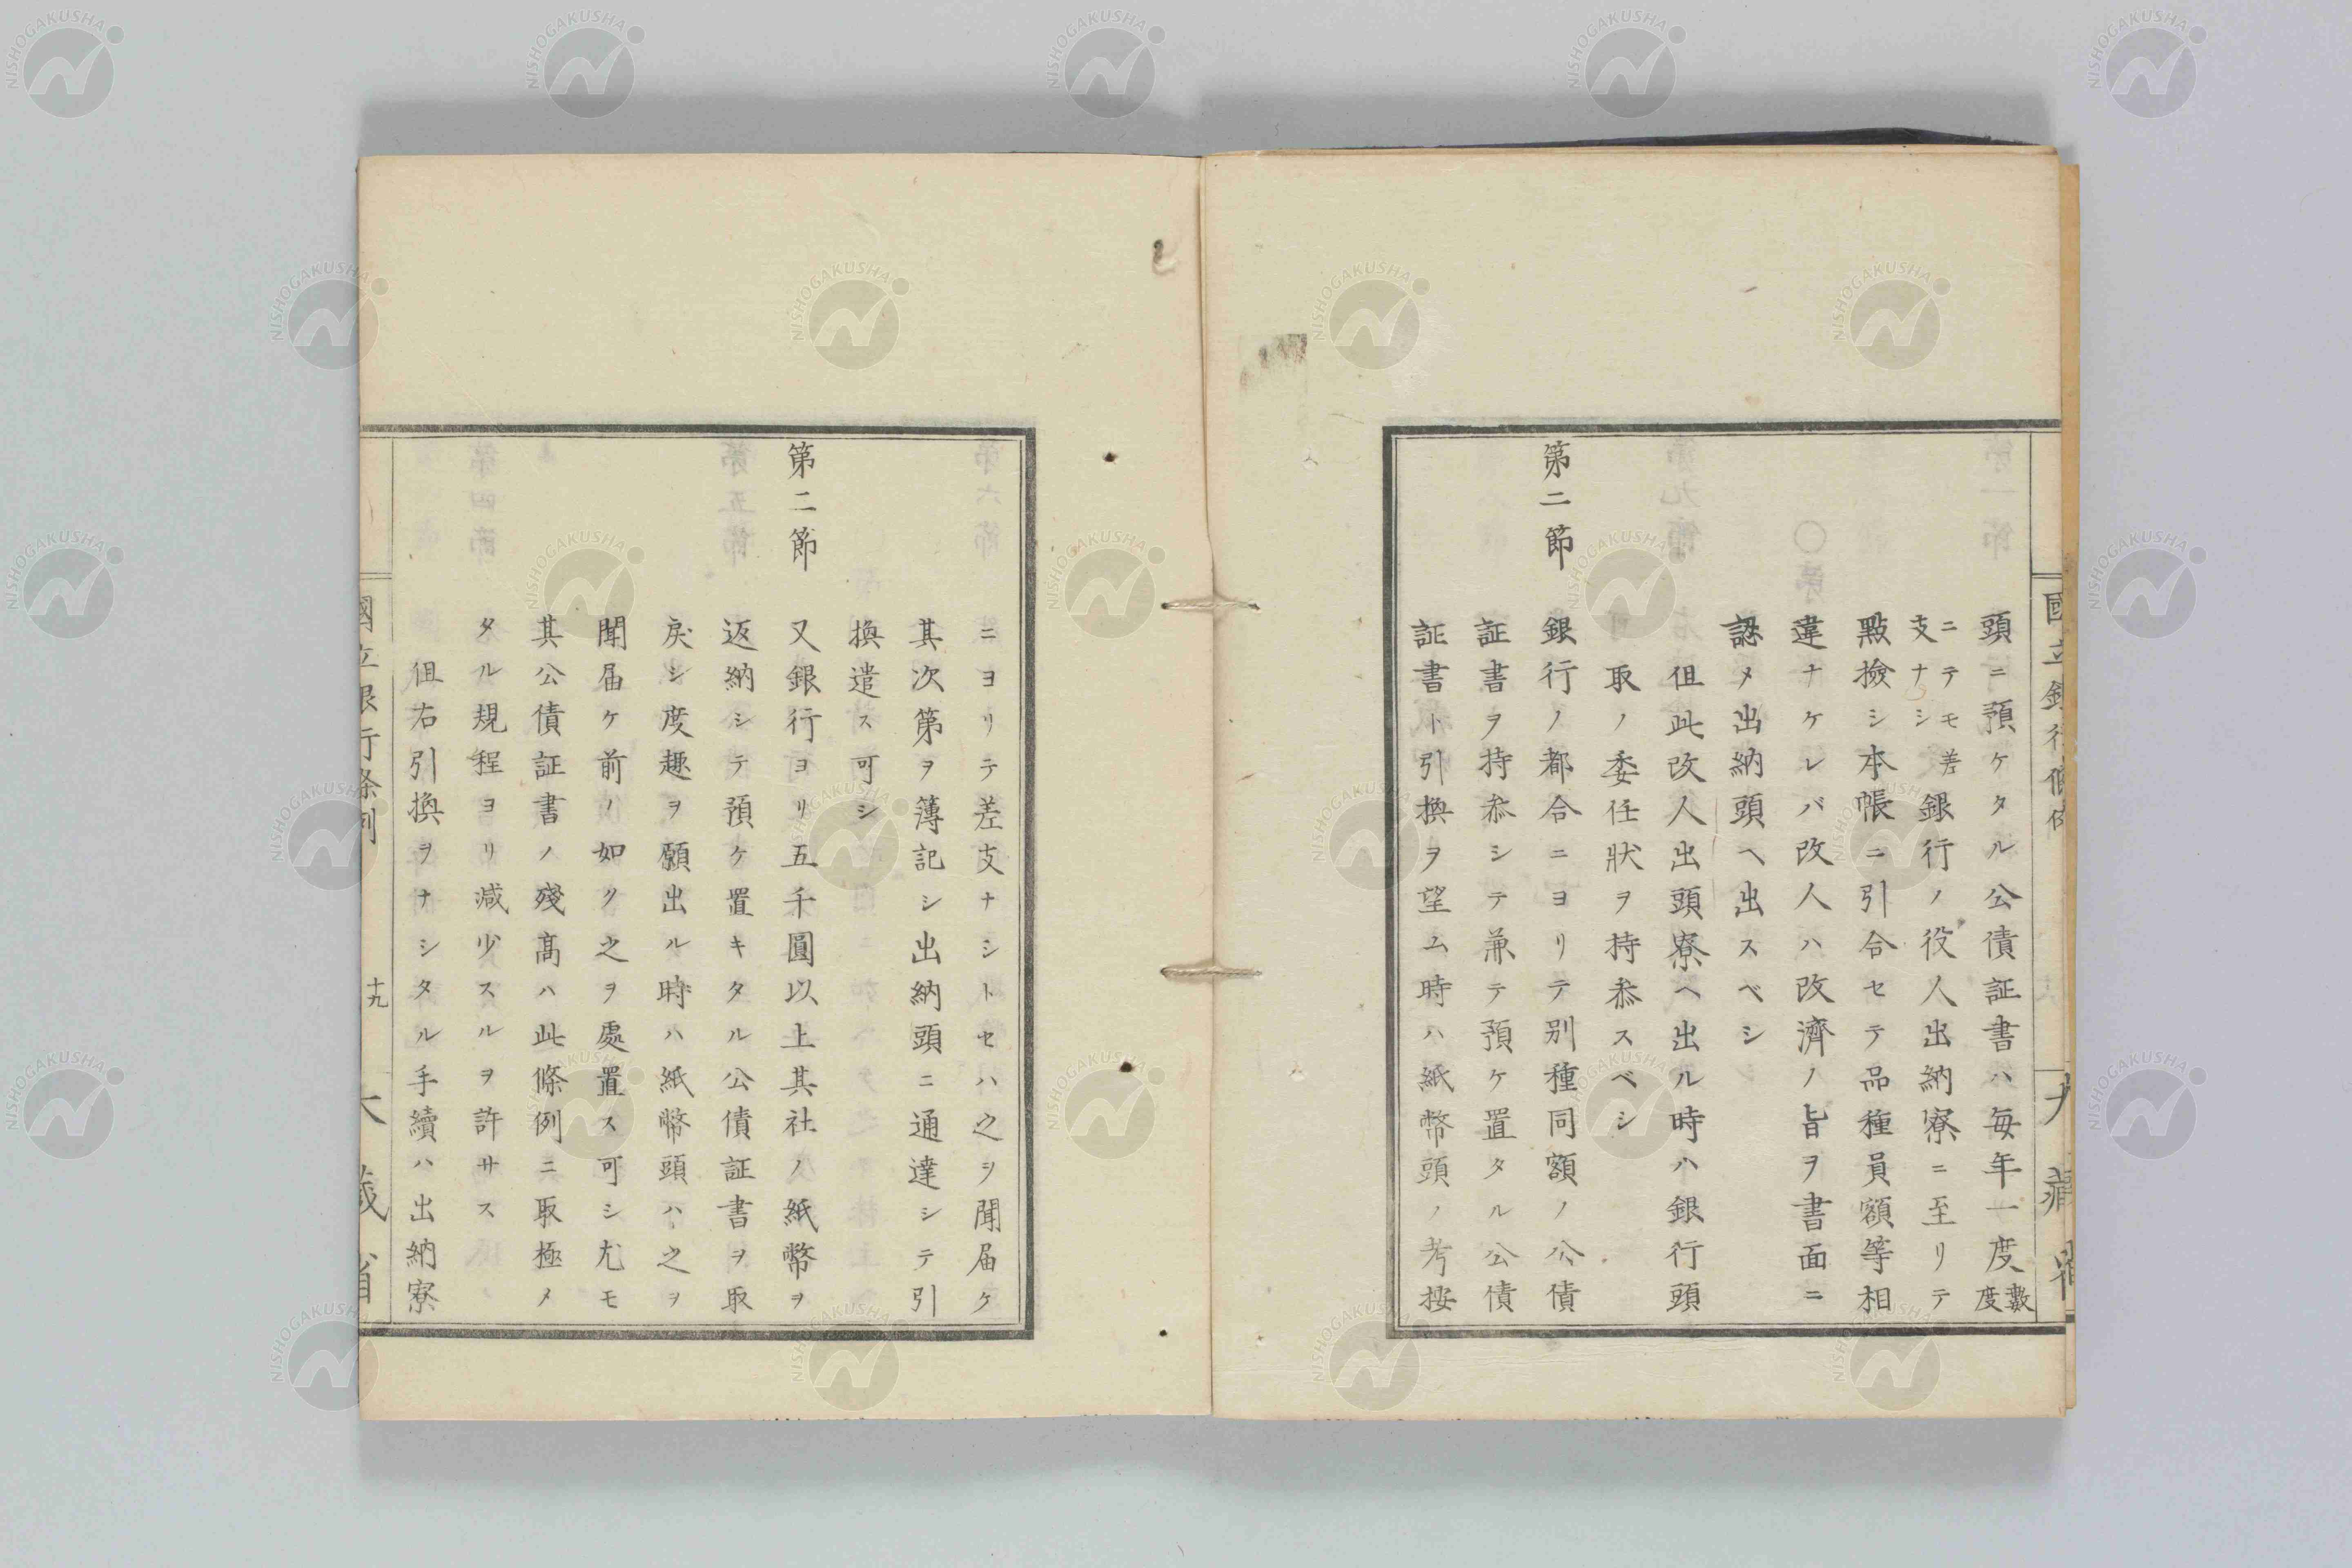 頭ニ預ケタル公債証書ハ毎年一度數度
ニテモ差支ナシ銀行ノ役人出納寮ニ至リテ
點撿シ本帳ニ引合セテ品種員額等相
違ナケレバ改人ハ改濟ノ旨ヲ書面ニ
認メ出納頭ヘ出スベシ
但此改人出頭寮ヘ出ル時ハ銀行頭
取ノ委任狀ヲ持叅スベシ
第二節
銀行ノ都合ニヨリテ別種同額ノ公債
証書ヲ持叅シテ兼テ預ケ置タル公債
証書ト引換ヲ望ム時ハ紙幣頭ノ考按
ニヨリテ差支ナシトセハ之ヲ聞届ケ
其次第ヲ簿記シ出納頭ニ通達シテ引
換遣ス可シ
第二節
又銀行ヨリ五千圓以上其社ノ紙幣ヲ
返納シテ預ケ置キタル公債証書ヲ取
戻シ度趣ヲ願出ル時ハ紙幣頭ハ之ヲ
聞届ケ前ノ如ク之ヲ處置ス可シ尤モ
其公債証書ノ殘高ハ此條例ニ取極メ
タル規程ヨリ減少スルヲ許サス
但右引換ヲナシタル手續ハ出納寮
國立銀行條例
十九
大藏省
NISHOGAKUSHA